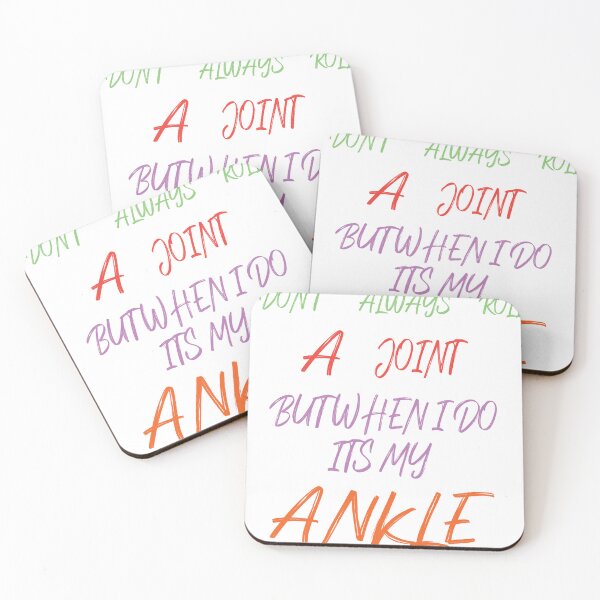 DONT ALWAYS ROL
A JOINT
BUT WHEN I DO
DONT ALWAYS ROL
A JOINT
BUT WHEN I DO
ITS MY
DONT ALWAYS ROL
A JOINT
BUT WHEN I DO
ITS MY
ANK
DONT ALWAYS ROL
A JOINT
BUT WHEN I DO
ITS MY
ANKLE